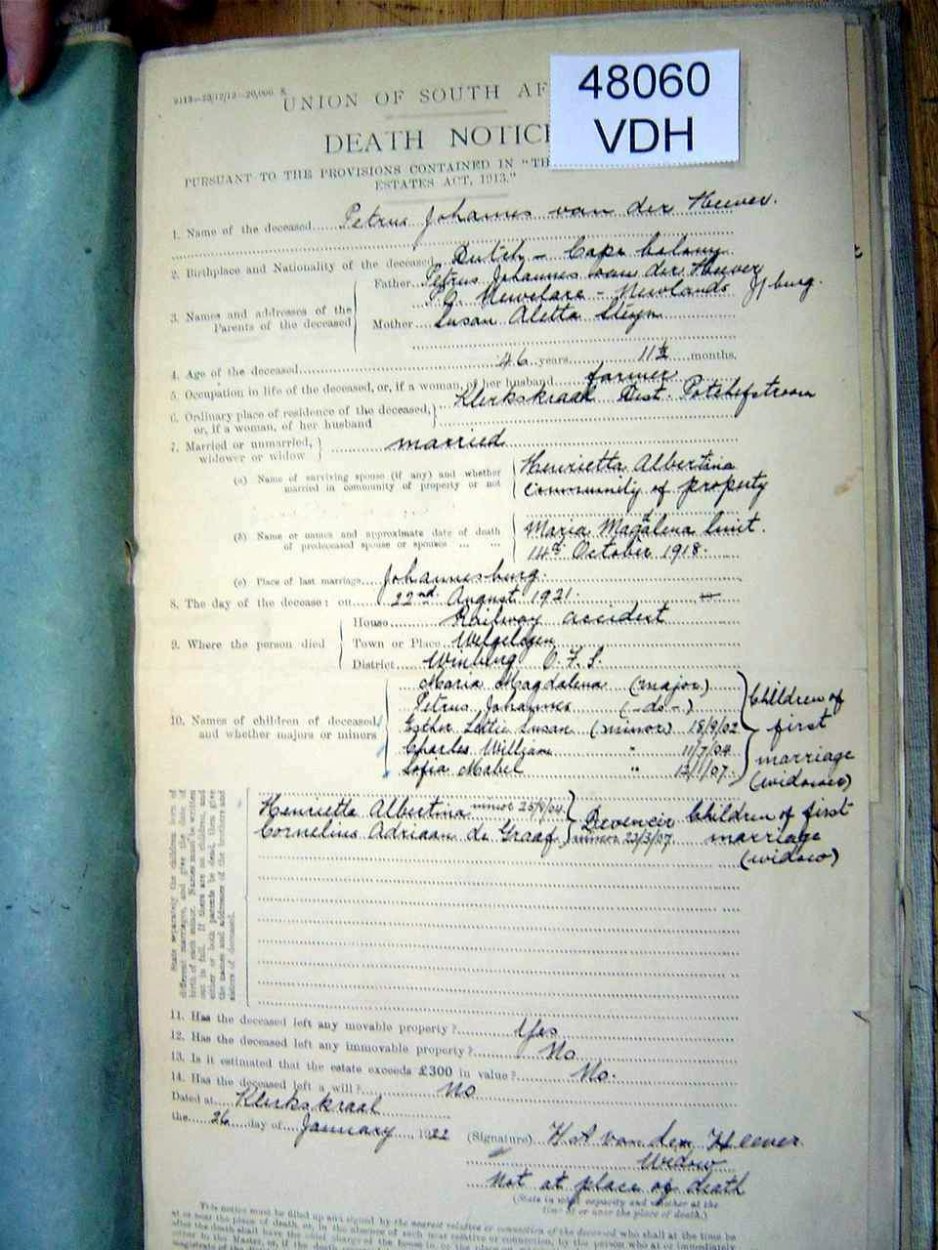 2113—23/12/13—20,000 S
UNION OF SOUTH AF
48060
VDH
DEATH NOTIC
PURSUANT TO THE PROVISIONS CONTAINED IN "TH
ESTATES ACT, 1913."
1. Name of the deceased Petrus Johannes van der Heever.
2. Birthplace and Nationality of the deceased Dutch – Cape Colony
3. Names and addresses of the Parents of the deceased
Father Petrus Johannes van der Heever
Newclare – Newlands J/burg.
Mother Susan Aletta Steyn
4. Age of the deceased 46 years 11½ months.
5. Occupation in life of the deceased, or, if a woman, of her husband farmer
6. Ordinary place of residence of the deceased, or, if a woman, of her husband Klerkskraal Dist. Potchefstroom
7. Married or unmarried, widower or widow married
(a) Name of surviving spouse (if any) and whether married in community of property or not
Henrietta Albertina
community of property
(b) Name or names and approximate date of death of predeceased spouse or spouses
Maria Magdalena
14th October 1918.
(c) Place of last marriage Johannesburg.
8. The day of the decease: on 22nd August 1921.
9. Where the person died
House Railway accident
Town or Place Welgelegen
District Winburg O.F.S.
10. Names of children of deceased, and whether majors or minors
Maria Magdalena (major)
Petrus Johannes (–do–)
Esther Lettie Susan (minor) 18/9/02
Charles William " 11/7/04
Sofia Mabel " 12/1/07.
Children of
first
marriage
(widower)
Henrietta Albertina minor
Cornelius Adriaan de Graaf minor 22/3/07.
Children of first
marriage
(widow)
State separately the children born of
different marriages, and give the date of
birth of each minor. Names must be written
out in full. If there are no children, and
either or both parents be dead, then give
the names and addresses of the brothers and
sisters of deceased.
11. Has the deceased left any movable property? Yes
12. Has the deceased left any immovable property? No
13. Is it estimated that the estate exceeds £300 in value? No.
14. Has the deceased left a will? No
Dated at Klerkskraal
the 26 day of January 1922
(Signature) H A van den Heever
Widow
Not at place of death
(State in what capacity and whether at the
time at or near the place of death.)
This notice must be filled up and signed by the nearest relative or connection of the deceased who shall at the time be
at or near the place of death, or, in the absence of such near relative or connection, by the person who at or immediately